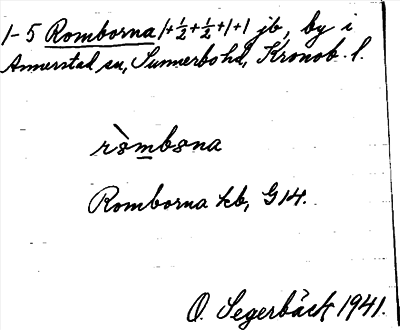 1-5 Romborna 1+½+½+1+1 jb, by i
Annerstad sn, Sunnerbo hd, Kronob. l.
Romborna kb, G 14.
O. Segerbäck 1941.